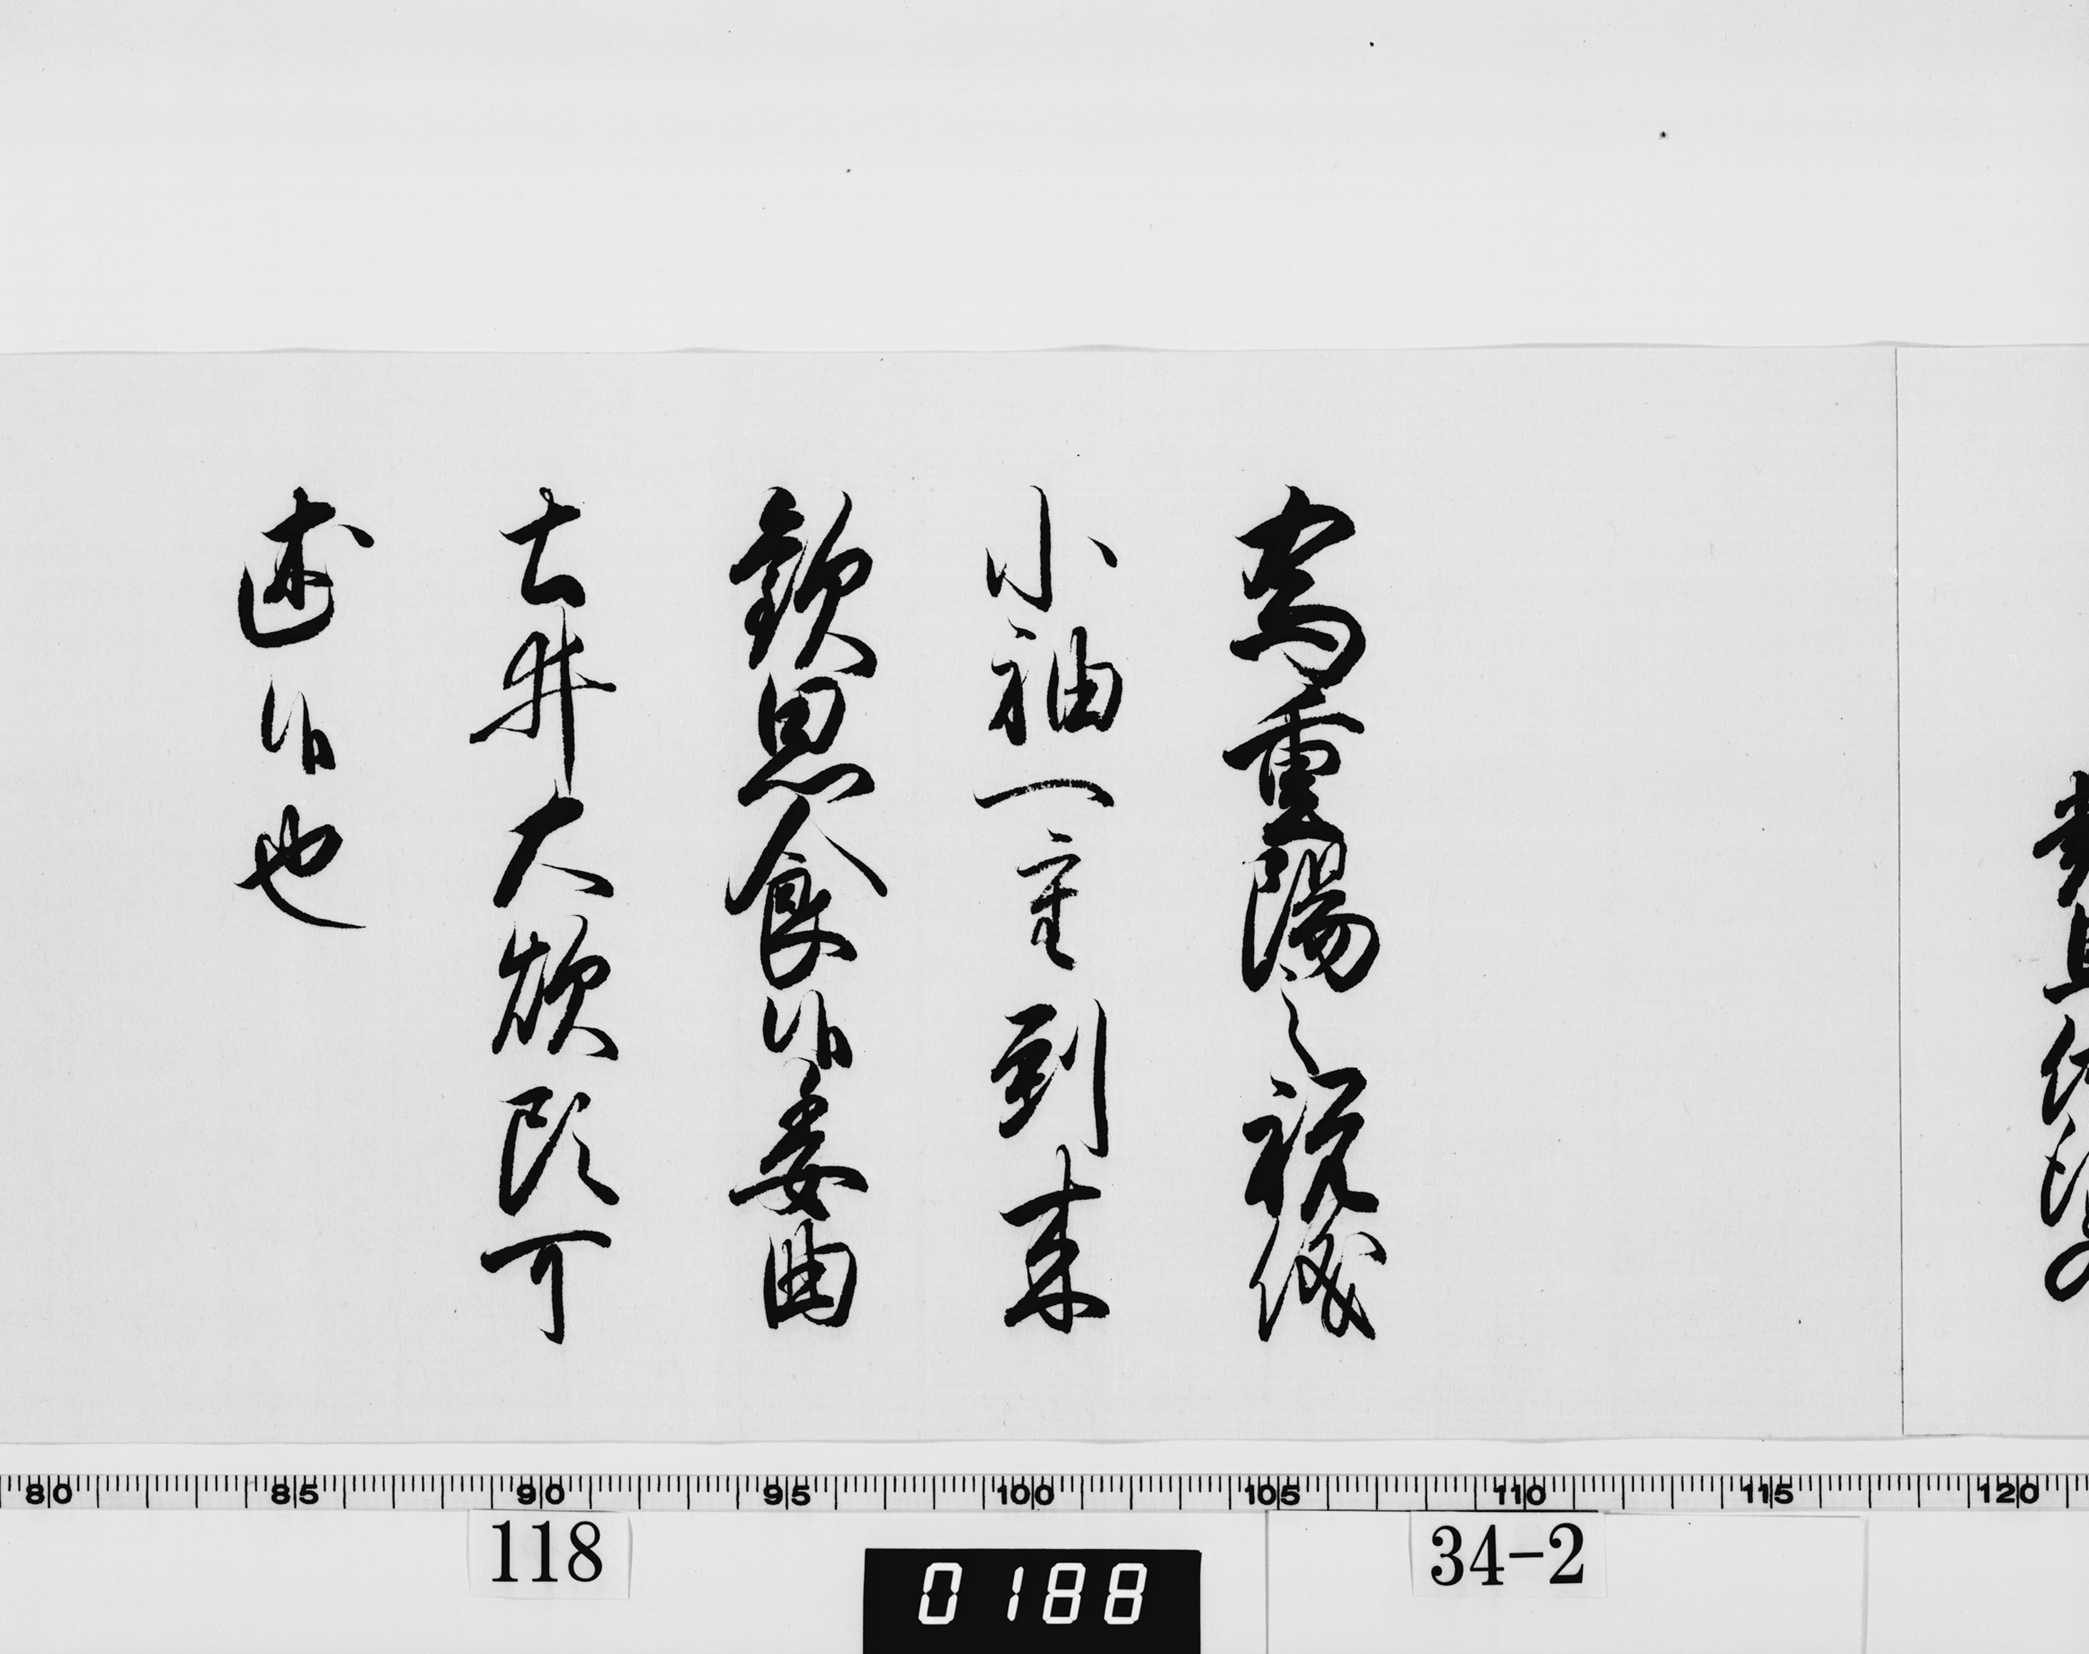 為重陽之祝儀
小袖一重到来
歓思食候委曲
土井大炊頭可
述候也
80 85 90 95 100 105 110 115 120
118
34-2
0188